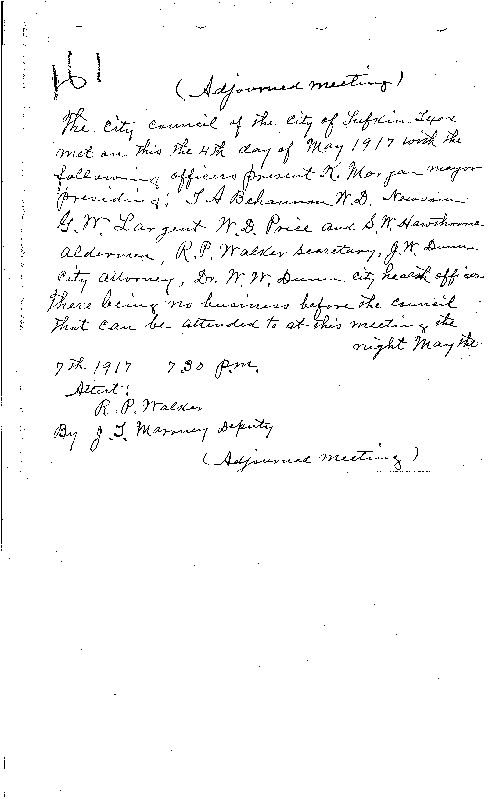 161
(Adjourned meeting)
The city council of the city of Lufkin Texas
met on this the 4th day of May 1917 with the
following officers present K. Morgan mayor
presiding; T A Behannon W.D. Newsom
G.W. Largent W.D. Price and S.W. Hawthorne
aldermen, R.P. Walker secretary, J.W. Dunn
city attorney, Dr. W.W. Dunn city health officer
There being no business before the council
that can be attended to at this meeting the
night May the
7th 1917 7 30 p.m.
Attest:
R. P. Walker
By J. T. Maroney Deputy
(Adjourned meeting)